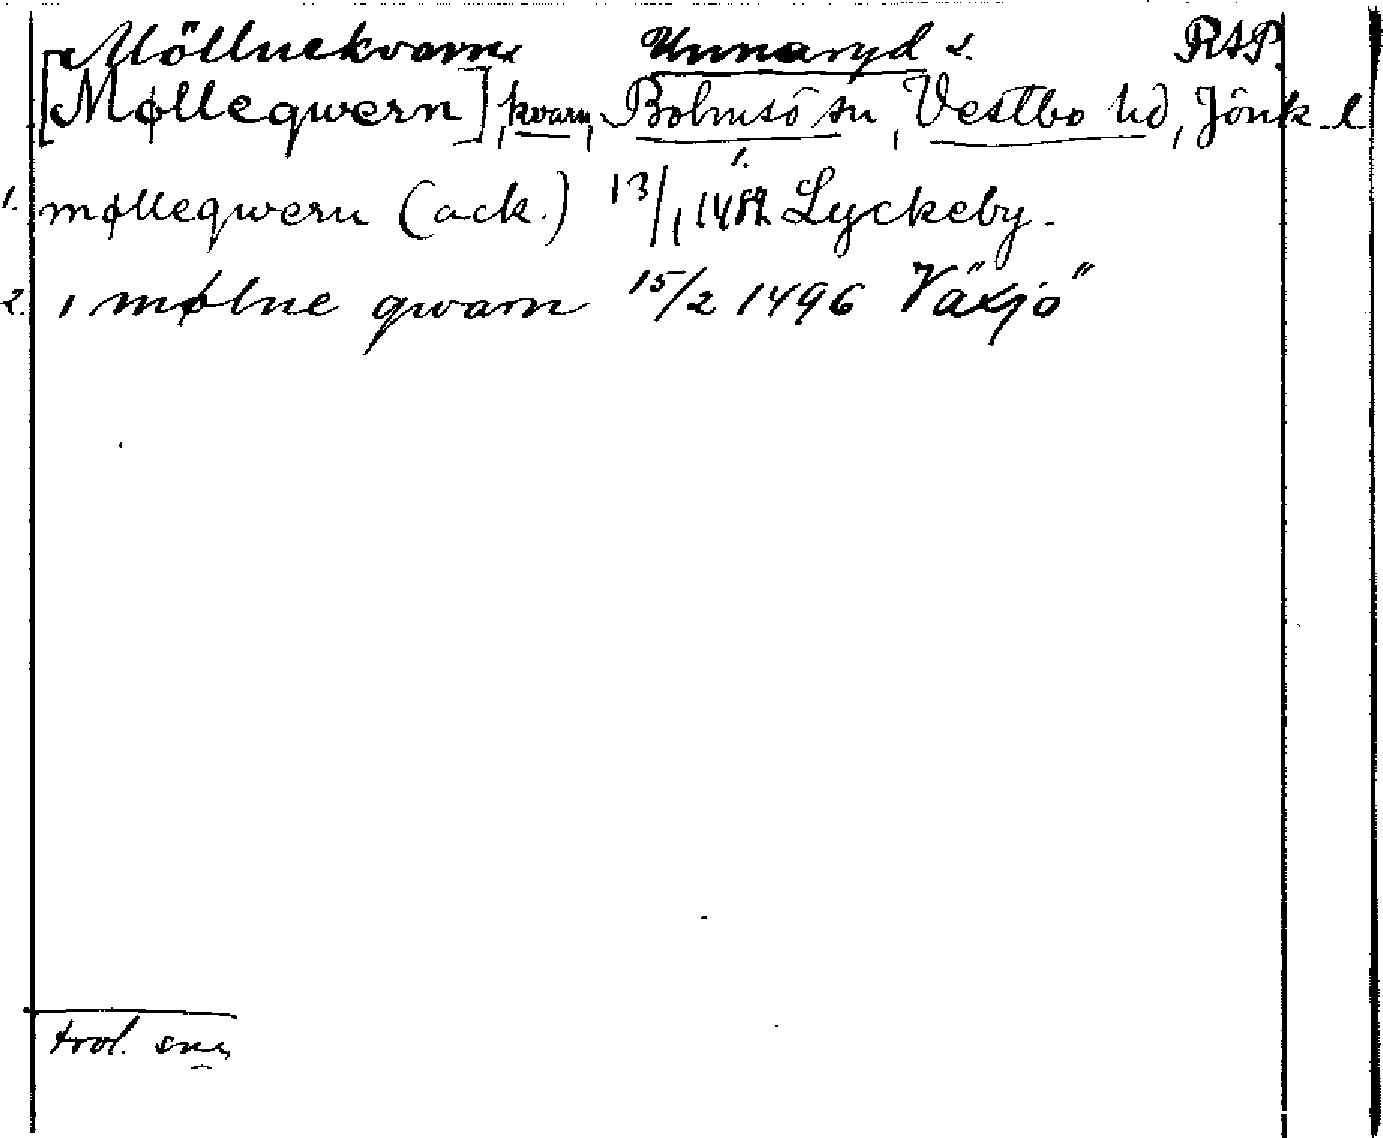 Möllnekvarn Unnaryd s. RAP.
[Mølleqwern], kvarn, Bolmsö sn, Vestbo hd, Jönk. l
1. mølleqwern (ack.) 13/1 Lyckeby.
2. i mølne qwarn 15/2 1496 Växjö
trol.